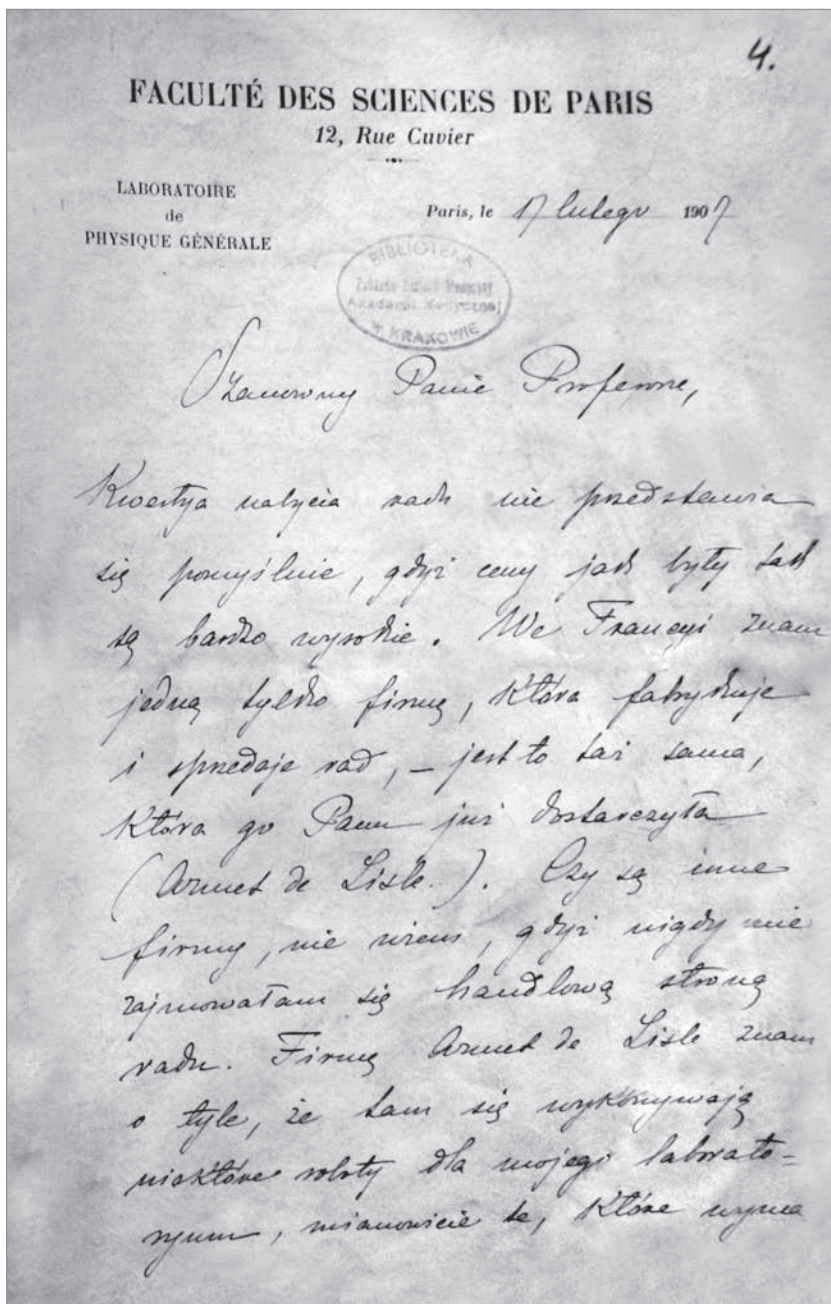 4.
FACULTÉ DES SCIENCES DE PARIS
12, Rue Cuvier
LABORATOIRE
de
PHYSIQUE GÉNÉRALE
Paris, le 17 lutego 1907
BIBLIOTEKA
Akademii Medycznej
W KRAKOWIE
Szanowny Panie Profesorze,
Kwestya nabycia radu nie przedstawia
się pomyślnie, gdyż ceny jak były tak
są bardzo wysokie. We Francyi znam
jedną tylko firmę, która fabrykuje
i sprzedaje rad, – jest to taż sama,
która go Panu już dostarczyła
(Armet de Lisle). Czy są inne
firmy, nie wiem, gdyż nigdy nie
zajmowałam się handlową stroną
radu. Firmę Armet de Lisle znam
o tyle, że tam się wykonywają
niektóre roboty dla mojego laborato=
ryum, mianowicie te, które wyma